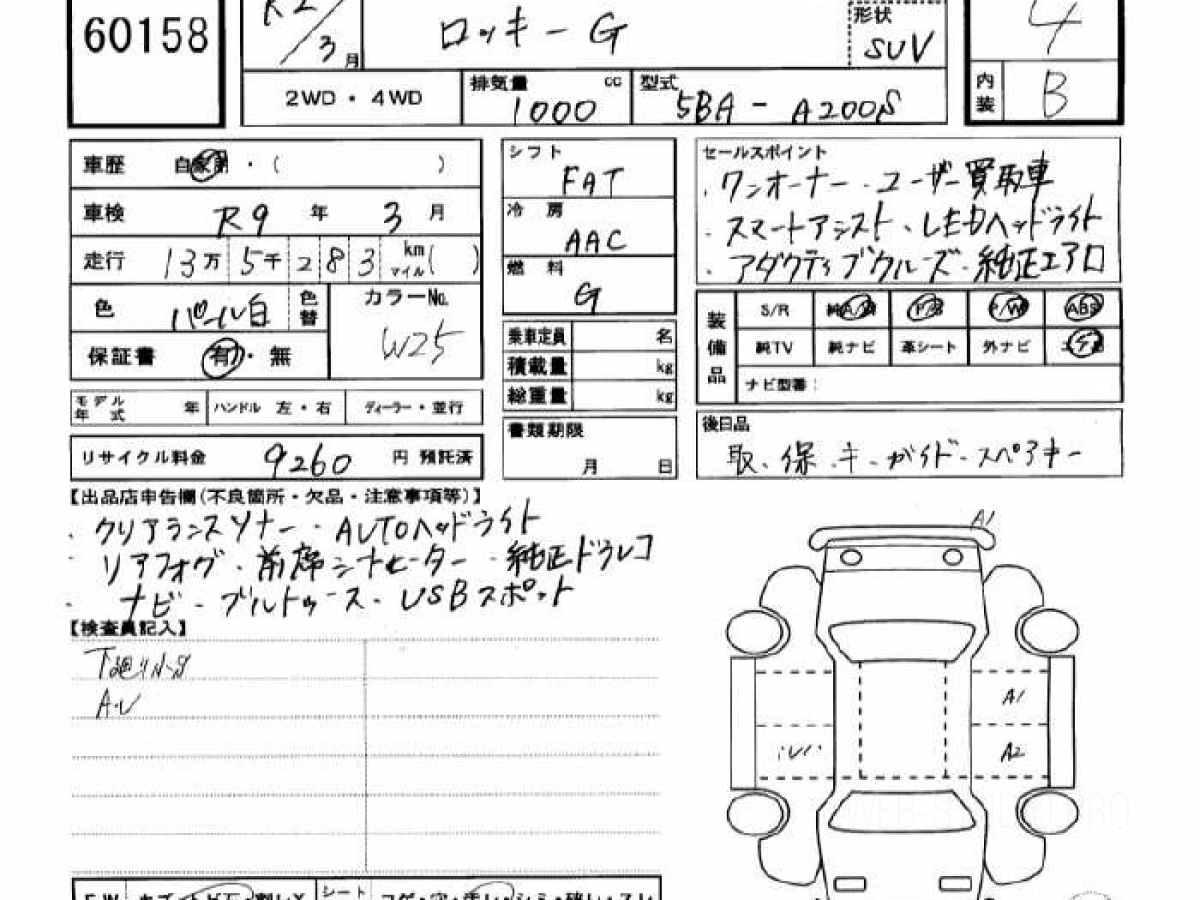 60158
R2/3月
ロッキー G
形状
SUV
4
2WD・4WD
排気量 cc
1000
型式
5BA-A200S
内装 B
車歴 自家用・( )
車検 R9年 3月
走行 13万5千283 km マイル( )
色 パール白 色替
カラーNo.
W25
保証書 有・無
モデル年式 年 ハンドル 左・右 ディーラー・並行
リサイクル料金 9260円 預託済
シフト
FAT
冷房
AAC
燃料
G
乗車定員 名
積載量 kg
総重量 kg
書類期限
月 日
セールスポイント
・ワンオーナー・ユーザー買取車
・スマートアシスト・LEDヘッドライト
・アダクティブクルーズ・純正エアロ
装備品
S/R 純A/W P/S P/W ABS
純TV 純ナビ 革シート 外ナビ
ナビ型番:
後日品
取、保、キ、ガイド・スペアキー
【出品店申告欄(不良箇所・欠品・注意事項等)】
・クリアランスソナー・AUTOヘッドライト
リアフォグ・前席シートヒーター・純正ドラレコ
・ナビ・ブルートゥース・USBスポット
【検査員記入】
A・U
A1
A1
A2
WEB-S
シート